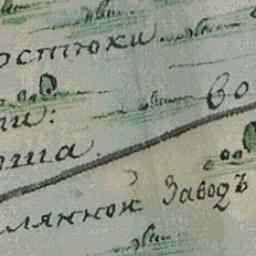 остюки.
ги:
во
оша.
лянной Заводъ